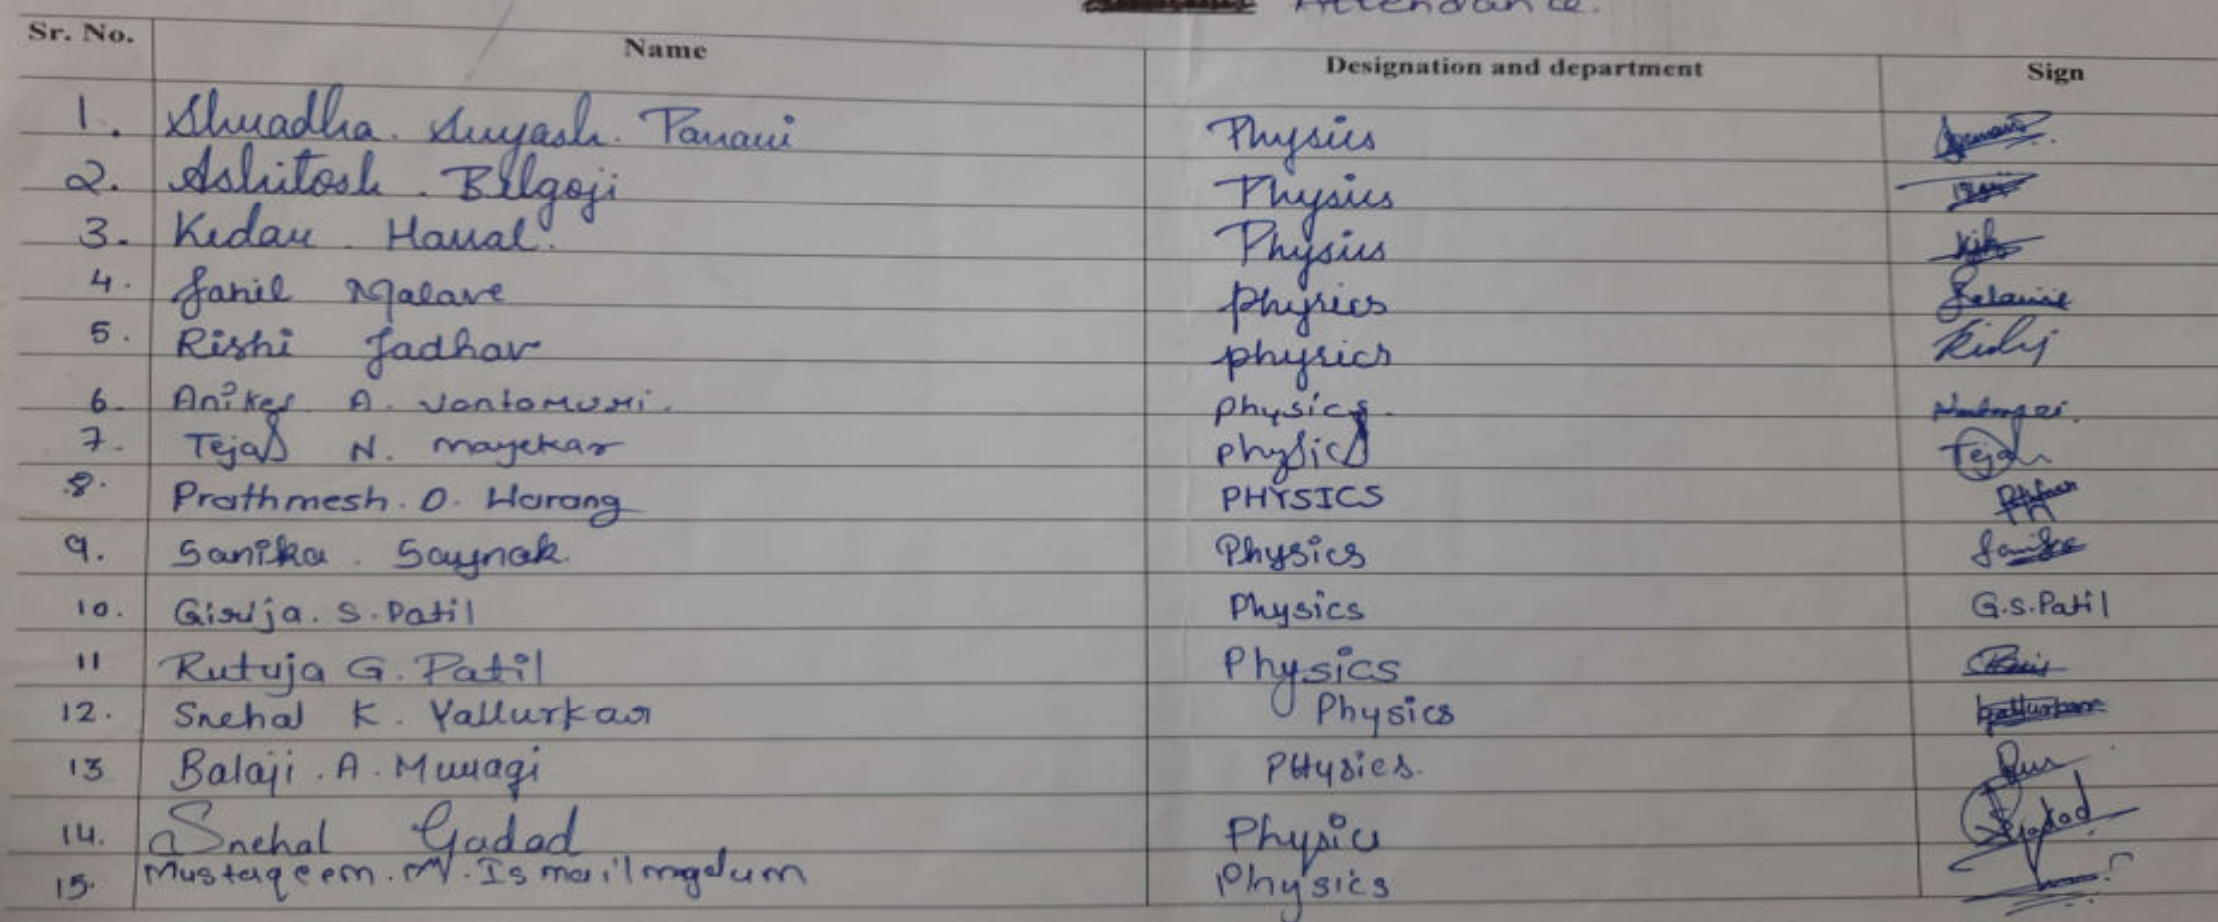 Attendance.
Sr. No. Name Designation and department Sign
1. Shuadha. Suyash. Panari Physics
2. Ashitosh. Belgoji Physics
3. Kedar. Haval. Physics
4. Sahil Malave physics Malave
5. Rishi Jadhav physics Rishi
6. Aniket A. Vantamuri. physics.
7. Tejas N. mayekar physics Tejas
8. Prathmesh. D. Harang PHYSICS
9. Sanika. Saynak. Physics Sanika
10. Girija. S. Patil Physics G.S.Patil
11 Rutuja G. Patil Physics
12. Snehal K. Yallurkar Physics Yallurkar
13 Balaji. A. Muragi PHysics.
14. Snehal Gadad Physics Gadad
15. Mustaqeem. M. Ismailmgdum Physics